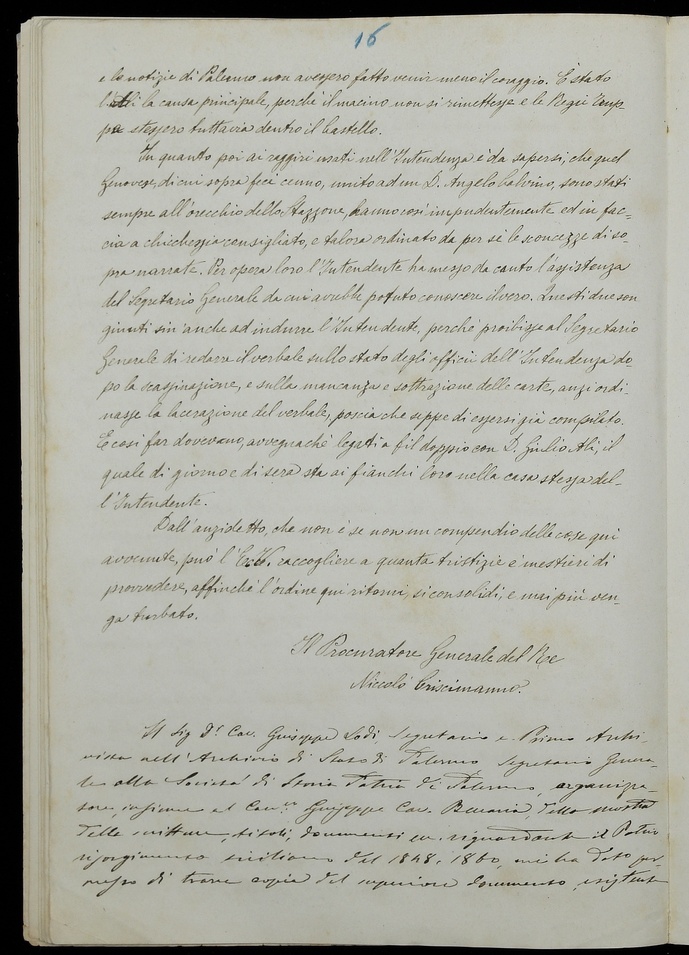 16
e le notizie di Palermo non avessero fatto venir meno il coraggio. È stato
l'Alì la causa principale, perchè il macino non si rimettesse e le Regie Trup-
pe stessero tuttavia dentro il Castello.
In quanto poi ai raggiri usati nell'Intendenza è da sapersi, che quel
Genovese, di cui sopra feci cenno, unito ad un D. Angelo Calvino, sono stati
sempre all'orecchio dello Stazzone, hanno così impudentemente ed in fac-
cia a chicchessia consigliato, e talora ordinato da per sè le sconcezze di so-
pra narrate. Per opera loro l'Intendente ha messo da canto l'assistenza
del Segretario Generale da cui avrebbe potuto conoscere il vero. Questi due son
giunti sin anche ad indurre l'Intendente, perchè proibisse al Segretario
Generale di redarre il verbale sullo stato degli officii dell'Intendenza do-
po la scassinazione, e sulla mancanza e sottrazione delle carte, anzi ordi-
nasse la lacerazione del verbale, poscia che seppe di essersi già compilato.
E così far dovevano, avvegnachè legati a fil doppio con D. Giulio Alì, il
quale di giorno e di sera sta ai fianchi loro nella casa stessa del-
l'Intendente.
Dall'anzidetto, che non è se non un compendio delle cose qui
avvenute, può l'E. V. raccogliere a quanta tristizie è mestieri di
provvedere, affinchè l'ordine qui ritorni, si consolidi, e mai più ven-
ga turbato.
Il Procuratore Generale del Re
Niccolò Criscimanno.
Il Sig. D.r Cav. Giuseppe Lodi, Segretario e Primo Archi-
vista nell'Archivio di Stato di Palermo Segretario Genera-
le alla Società di Storia Patria di Palermo, organizza-
tore, insieme al Cav. Giuseppe Cav. della mostra
delle scritture, titoli, documenti ec. riguardante il Patrio
risorgimento siciliano del 1848, 1860, mi ha dato per-
messo di trarre copia del superiore documento, esistente